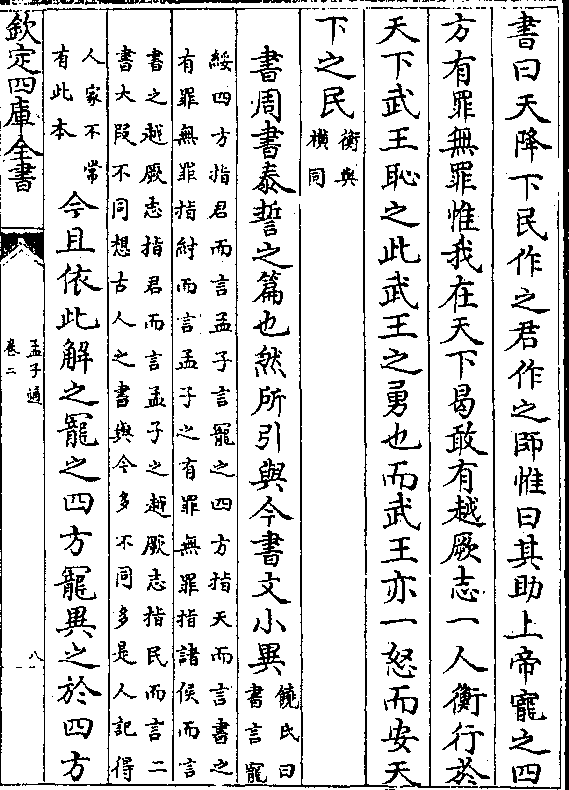 書曰天降下民作之君作之師惟曰其助上帝寵之四
方有罪無罪惟我在天下曷敢有越厥志一人衡行於
天下武王恥之此武王之勇也而武王亦一怒而安天
下之民
衡與
橫同
書周書泰誓之篇也然所引與今書文小異
饒氏曰
書言寵
綏四方指君而言孟子言寵之四方指天而言書之
有罪無罪指紂而言孟子之有罪無罪指諸侯而言
書之越厥志指君而言孟子之越厥志指民而言二
書大段不同想古人之書與今多不同多是人記得
人家不常
有此本
今且依此解之寵之四方寵異之於四方
欽定四庫全書
孟子通
卷二
八